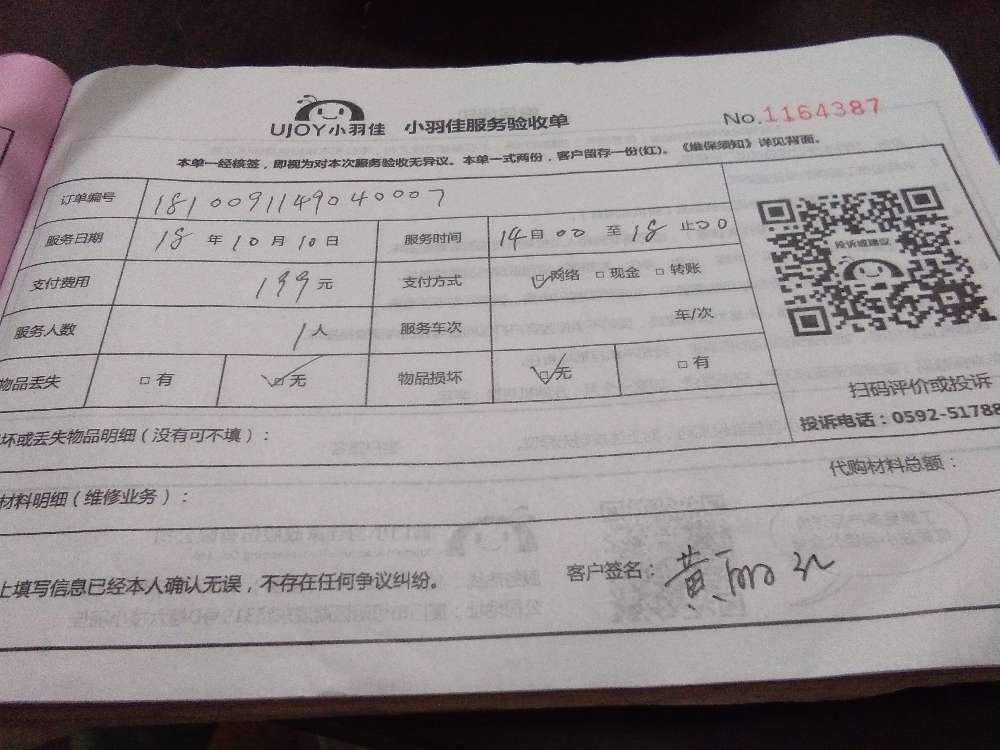 UJOY小羽佳 小羽佳服务验收单 No.1164387
本单一经核签,即视为对本次服务验收无异议。本单一式两份,客户留存一份(红)。《维保须知》详见背面。
订单编号 1810091149040007
服务日期 18 年 10 月 10 日 服务时间 14 自 00 至 18 止 00
投诉或建议
支付费用 199 元 支付方式 ☑网络 □现金 □转账
服务人数 1 人 服务车次 车/次
物品丢失 □有 ☑无 物品损坏 ☑无 □有
扫码评价或投诉
投诉电话:0592-51788
坏或丢失物品明细(没有可不填):
代购材料总额:
材料明细(维修业务):
上填写信息已经本人确认无误,不存在任何争议纠纷。 客户签名:黄丽红